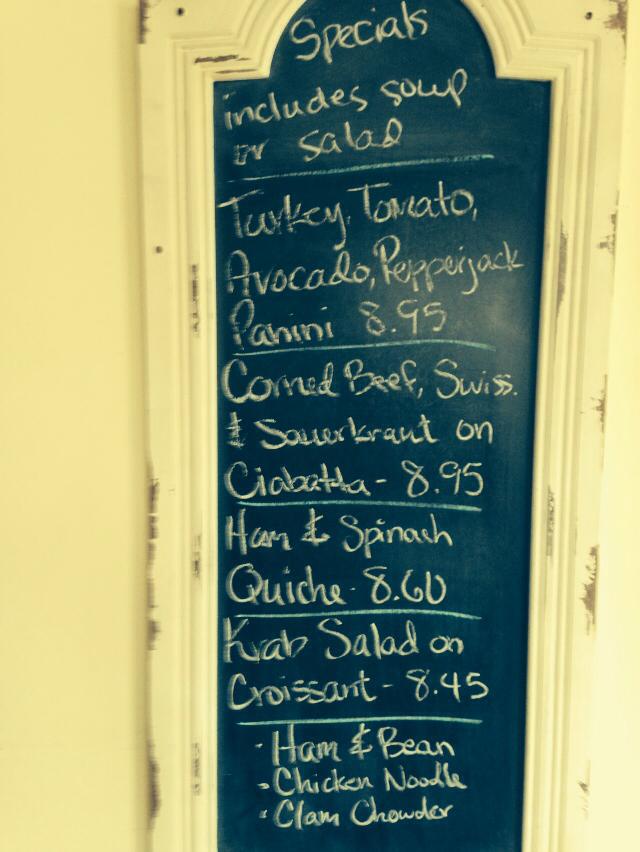 Specials
includes soup
or salad
Turkey, Tomato,
Avocado, Pepperjack
Panini 8.95
Corned Beef, Swiss.
& Sauerkraut on
Ciabatta - 8.95
Ham & Spinach
Quiche - 8.60
Krab Salad on
Croissant - 8.45
· Ham & Bean
· Chicken Noodle
· Clam Chowder